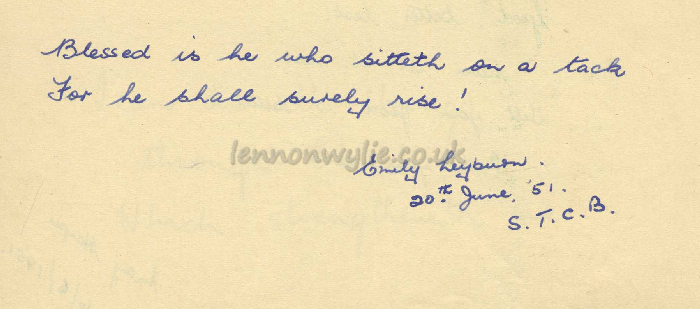 Blessed is he who sitteth on a tack
For he shall surely rise!
lennonwylie.co.uk
Emily Leyburn.
20th June, '51.
S.T.C.B.